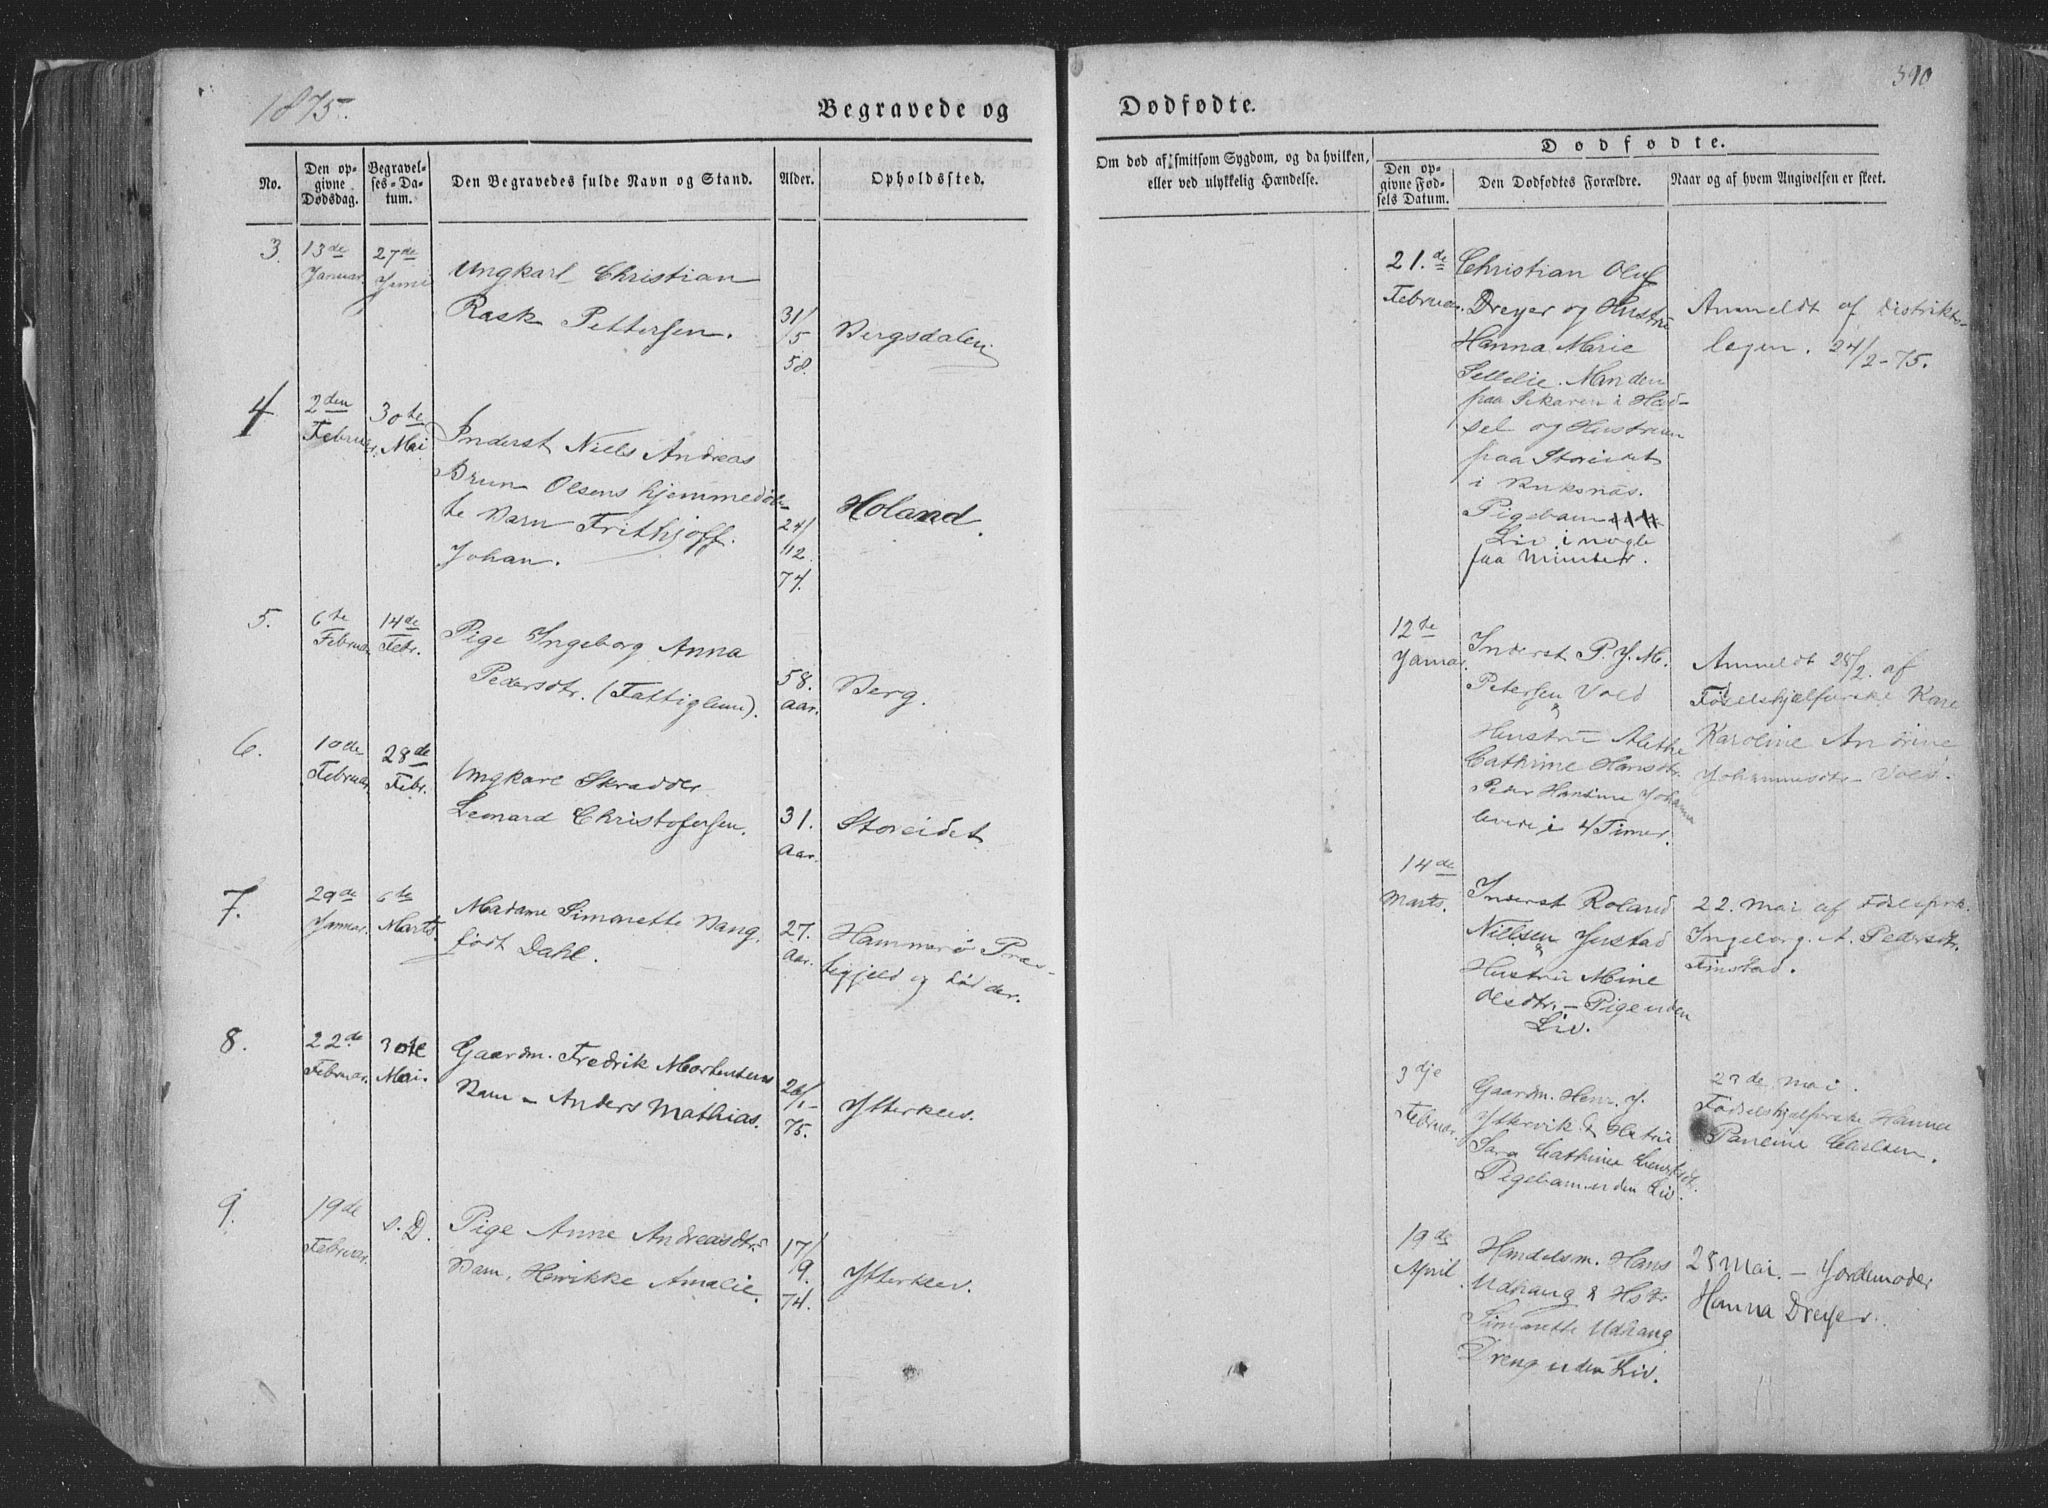 1875.
Begravede og
No.
Den opgivne Dødsdag.
Begravelses-Datum.
Den Begravedes fulde Navn og Stand.
Alder.
Opholdssted.
3.
13de Januar.
27de Juni
Ungkarl Christian
Rask Pettersen.
31/5 58.
Bergsdalen
4
2den Februar.
30te Mai
Inderst Niels Andreas
Brun Olsens hjemmedøb-
te Barn Frithjoff
Johan.
24/12. 74.
Holand.
5.
6te Februar
14de Febr.
Pige Ingeborg Anna
Pedersdtr. (Fattiglem).
58. Aar.
Berg.
6.
10de Februar
28de Febr.
Ungkarl Skrædder
Leonard Christofersen.
31. Aar.
Storeidet
7.
29de Januar.
6te Marts.
Madame Simonette Bang,
født Dahl.
27. Aar.
Hammerø Præs-
tegjeld og død der.
8.
22de Februar.
30te Mai.
Gaardm. Fredrik Mortensens
Barn – Anders Mathias.
26/1 – 75.
Ytterklev.
9.
19de Februar.
s. D.
Pige Anne Andreasdtrs
Barn, Henrikke Amalie.
17/9. 74.
Ytterklev.
Dødfødte.
390
Om død af smitsom Sygdom, og da hvilken,
eller ved ulykkelig Hændelse.
Dødfødte.
Den opgivne Fødsels Datum.
Den Dødfødtes Forældre.
Naar og af hvem Angivelsen er skeet.
21.de Februar.
Christian Oluf
Dreyer og Hustru
Hanna Marie
Manden
paa Skaren i Had-
sel og Hustruen
paa Storeidet
i Buksnæs.
Pigebarn
Liv i nogle
faa Minuter.
Anmeldt af Distrikts-
lægen. 24/2 - 75.
12te Januar.
Inderst P. J. M.
Petersen Vold
&
Hustru Alethe
Cathrine Hansdtr.
Peder Hansine Johanna
levede i 4 Timer.
Anmeldt 28/2. af
Fødselshjælperske Kone
Karoline Andrine
Johannesdtr Vold.
14de Marts.
Inderst Roland
Nielsen Justad
&
Hustru Mine
Olsdtr. – Pige uden
Liv.
22. Mai af Fødselshj.
Ingeborg A. Pedersdtr.
Finstad.
3dje Februar.
Gaardm. Henr. J.
Yttervik & Hustru
Sara Cathrine
Pigebarn uden Liv.
23de Mai.
Fødselshjælperske Hanna
Pauline Carlsen.
19de April.
Handelsm. Hans
Udhaug & Hstr
Simonette Udhaug
Dreng uden Liv.
28 Mai. – Jordemoder
Hanna Dreyer.